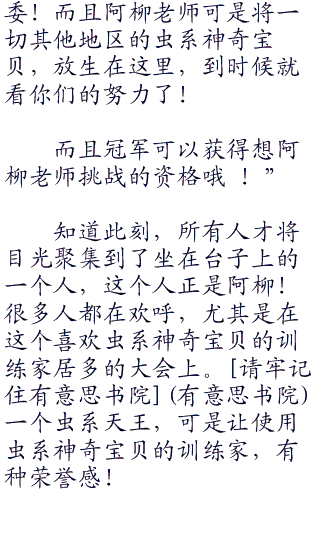 委！而且阿柳老师可是将一
切其他地区的虫系神奇宝
贝，放生在这里，到时候就
看你们的努力了！
而且冠军可以获得想阿
柳老师挑战的资格哦 ！”
知道此刻，所有人才将
目光聚集到了坐在台子上的
一个人，这个人正是阿柳！
很多人都在欢呼，尤其是在
这个喜欢虫系神奇宝贝的训
练家居多的大会上。[请牢记
住有意思书院] (有意思书院)
一个虫系天王，可是让使用
虫系神奇宝贝的训练家，有
种荣誉感！